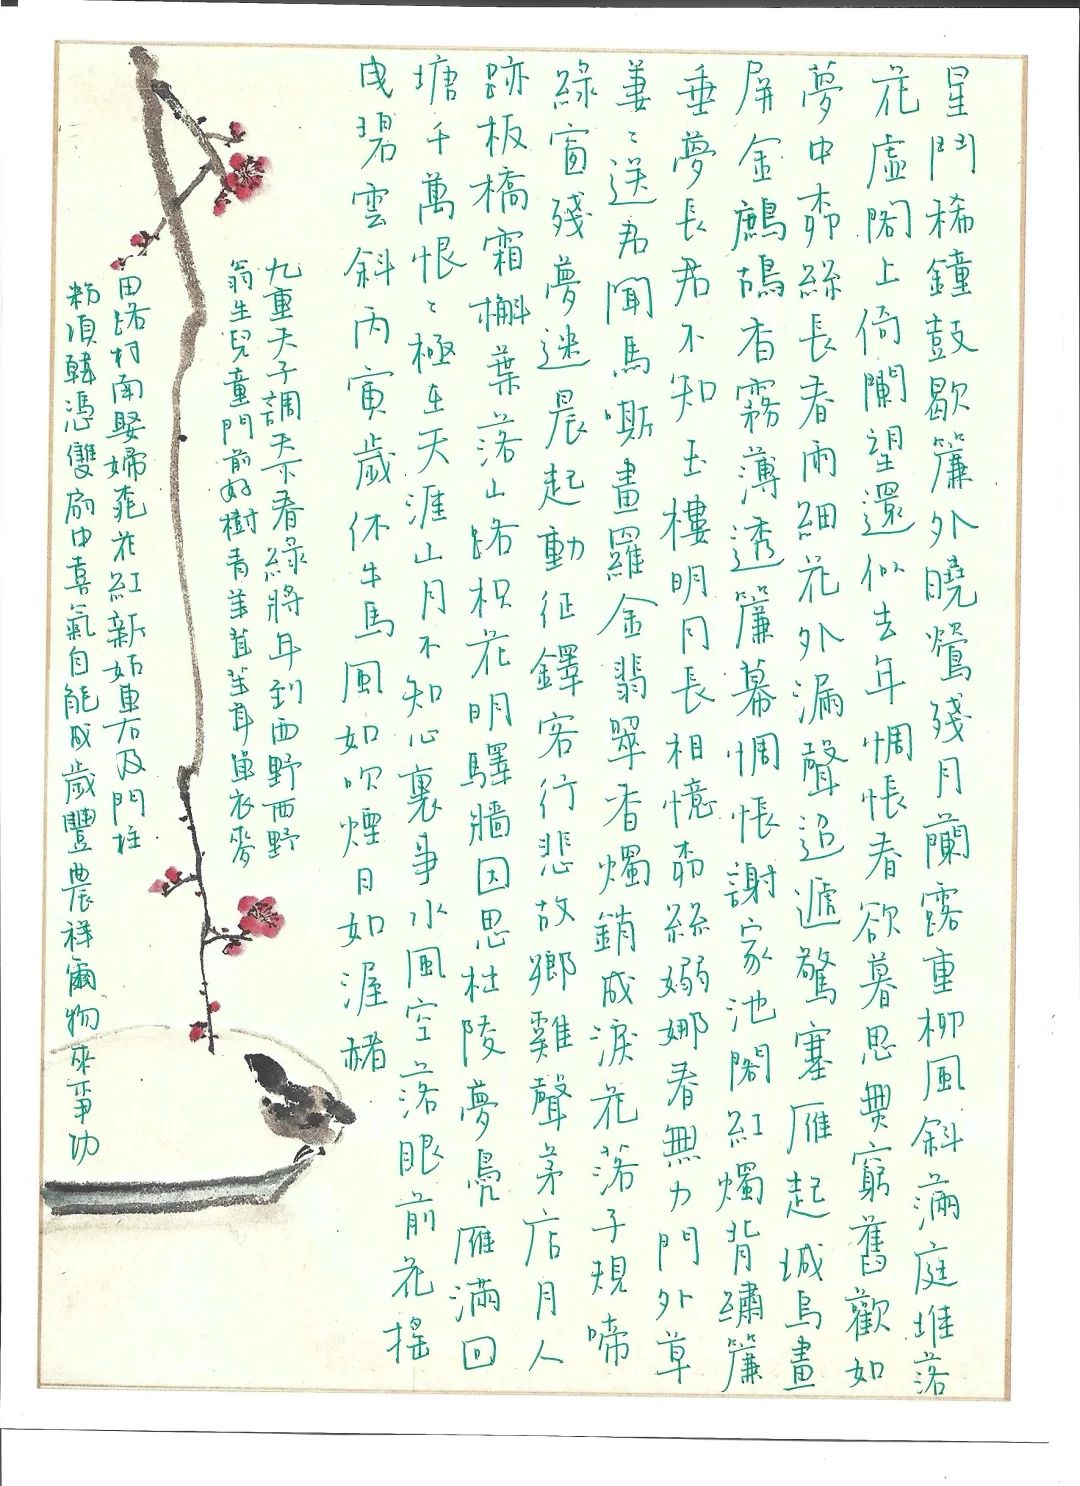 星鬥稀鐘鼓歇簾外曉鶯殘月蘭露重柳風斜滿庭堆落
花虛閣上倚闌望還似去年惆悵春欲暮思無窮舊歡如
夢中柳絲長春雨細花外漏聲迢遞驚塞雁起城烏畫
屏金鷓鴣香霧薄透簾幕惆悵謝家池閣紅燭背繡簾
垂夢長君不知玉樓明月長相憶柳絲嫋娜春無力門外草
萋〻送君聞馬嘶畫羅金翡翠香燭銷成淚花落子規啼
綠窗殘夢迷晨起動征鐸客行悲故鄉雞聲茅店月人
跡板橋霜槲葉落山路枳花明驛牆因思杜陵夢鳧雁滿回
塘千萬恨〻極在天涯山月不知心裏事水風空落眼前花搖
曳碧雲斜丙寅歲休牛馬風如吹煙日如渥赭
九重天子調天下春綠將年到西野西野
翁生兒童門前好樹青茸茸茸茸單衣麥
田路村南娶婦桃花紅新姑車右及門柱
粉項韓憑雙扇中喜氣自能成歲豐農祥爾物來爭功